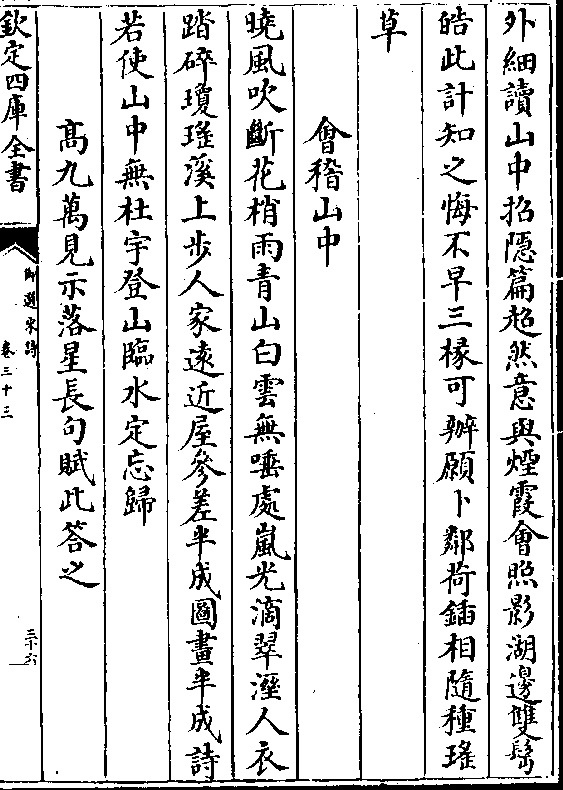 外細讀山中招隱篇超然意與煙霞會照影湖邊雙髩
皓此計知之悔不早三椽可辦願卜鄰荷鍤相隨種瑤
草
會稽山中
曉風吹斷花梢雨青山白雲無唾處嵐光滴翠溼人衣
踏碎瓊瑤溪上步人家遠近屋參差半成圖畫半成詩
若使山中無杜宇登山臨水定忘歸
髙九萬見示落星長句賦此答之
欽定四庫全書
御選宋詩
卷三十三
三十六